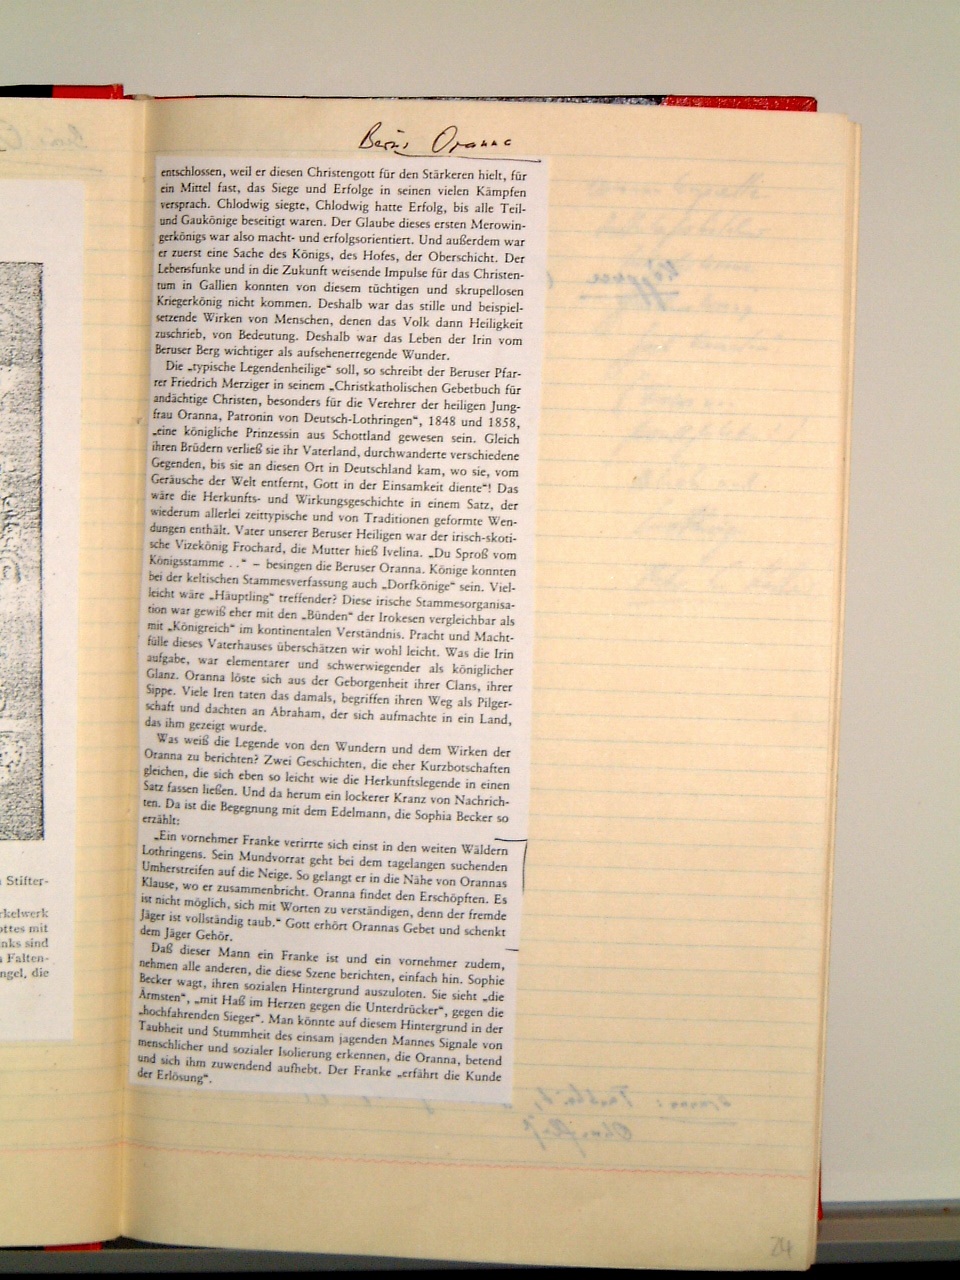 Oranna
entschlossen, weil er diesen Christengott für den Stärkeren hielt, für
ein Mittel fast, das Siege und Erfolge in seinen vielen Kämpfen
versprach. Chlodwig siegte, Chlodwig hatte Erfolg, bis alle Teil-
und Gaukönige beseitigt waren. Der Glaube dieses ersten Merowin-
gerkönigs war also macht- und erfolgsorientiert. Und außerdem war
er zuerst eine Sache des Königs, des Hofes, der Oberschicht. Der
Lebensfunke und in die Zukunft weisende Impulse für das Christen-
tum in Gallien konnten von diesem tüchtigen und skrupellosen
Kriegerkönig nicht kommen. Deshalb war das stille und beispiel-
setzende Wirken von Menschen, denen das Volk dann Heiligkeit
zuschrieb, von Bedeutung. Deshalb war das Leben der Irin vom
Beruser Berg wichtiger als aufsehenerregende Wunder.
Die „typische Legendenheilige“ soll, so schreibt der Beruser Pfar-
rer Friedrich Merziger in seinem „Christkatholischen Gebetbuch für
andächtige Christen, besonders für die Verehrer der heiligen Jung-
frau Oranna, Patronin von Deutsch-Lothringen“, 1848 und 1858,
„eine königliche Prinzessin aus Schottland gewesen sein. Gleich
ihren Brüdern verließ sie ihr Vaterland, durchwanderte verschiedene
Gegenden, bis sie an diesen Ort in Deutschland kam, wo sie, vom
Geräusche der Welt entfernt, Gott in der Einsamkeit diente“! Das
wäre die Herkunfts- und Wirkungsgeschichte in einem Satz, der
wiederum allerlei zeittypische und von Traditionen geformte Wen-
dungen enthält. Vater unserer Beruser Heiligen war der irisch-skoti-
sche Vizekönig Frochard, die Mutter hieß Ivelina. „Du Sproß vom
Königsstamme . .“ – besingen die Beruser Oranna. Könige konnten
bei der keltischen Stammesverfassung auch „Dorfkönige“ sein. Viel-
leicht wäre „Häuptling“ treffender? Diese irische Stammesorganisa-
tion war gewiß eher mit den „Bünden“ der Irokesen vergleichbar als
mit „Königreich“ im kontinentalen Verständnis. Pracht und Macht-
fülle dieses Vaterhauses überschätzen wir wohl leicht. Was die Irin
aufgabe, war elementarer und schwerwiegender als königlicher
Glanz. Oranna löste sich aus der Geborgenheit ihrer Clans, ihrer
Sippe. Viele Iren taten das damals, begriffen ihren Weg als Pilger-
schaft und dachten an Abraham, der sich aufmachte in ein Land,
das ihm gezeigt wurde.
Was weiß die Legende von den Wundern und dem Wirken der
Oranna zu berichten? Zwei Geschichten, die eher Kurzbotschaften
gleichen, die sich eben so leicht wie die Herkunftslegende in einen
Satz fassen ließen. Und da herum ein lockerer Kranz von Nachrich-
ten. Da ist die Begegnung mit dem Edelmann, die Sophia Becker so
erzählt:
„Ein vornehmer Franke verirrte sich einst in den weiten Wäldern
Lothringens. Sein Mundvorrat geht bei dem tagelangen suchenden
Umherstreifen auf die Neige. So gelangt er in die Nähe von Orannas
Klause, wo er zusammenbricht. Oranna findet den Erschöpften. Es
ist nicht möglich, sich mit Worten zu verständigen, denn der fremde
Jäger ist vollständig taub.“ Gott erhört Orannas Gebet und schenkt
dem Jäger Gehör.
Daß dieser Mann ein Franke ist und ein vornehmer zudem,
nehmen alle anderen, die diese Szene berichten, einfach hin. Sophie
Becker wagt, ihren sozialen Hintergrund auszuloten. Sie sieht „die
Ärmsten“, „mit Haß im Herzen gegen die Unterdrücker“, gegen die
„hochfahrenden Sieger“. Man könnte auf diesem Hintergrund in der
Taubheit und Stummheit des einsam jagenden Mannes Signale von
menschlicher und sozialer Isolierung erkennen, die Oranna, betend
und sich ihm zuwendend aufhebt. Der Franke „erfährt die Kunde
der Erlösung“.
Stifter-
rkelwerk
ottes mit
nks sind
Falten-
ngel, die
24